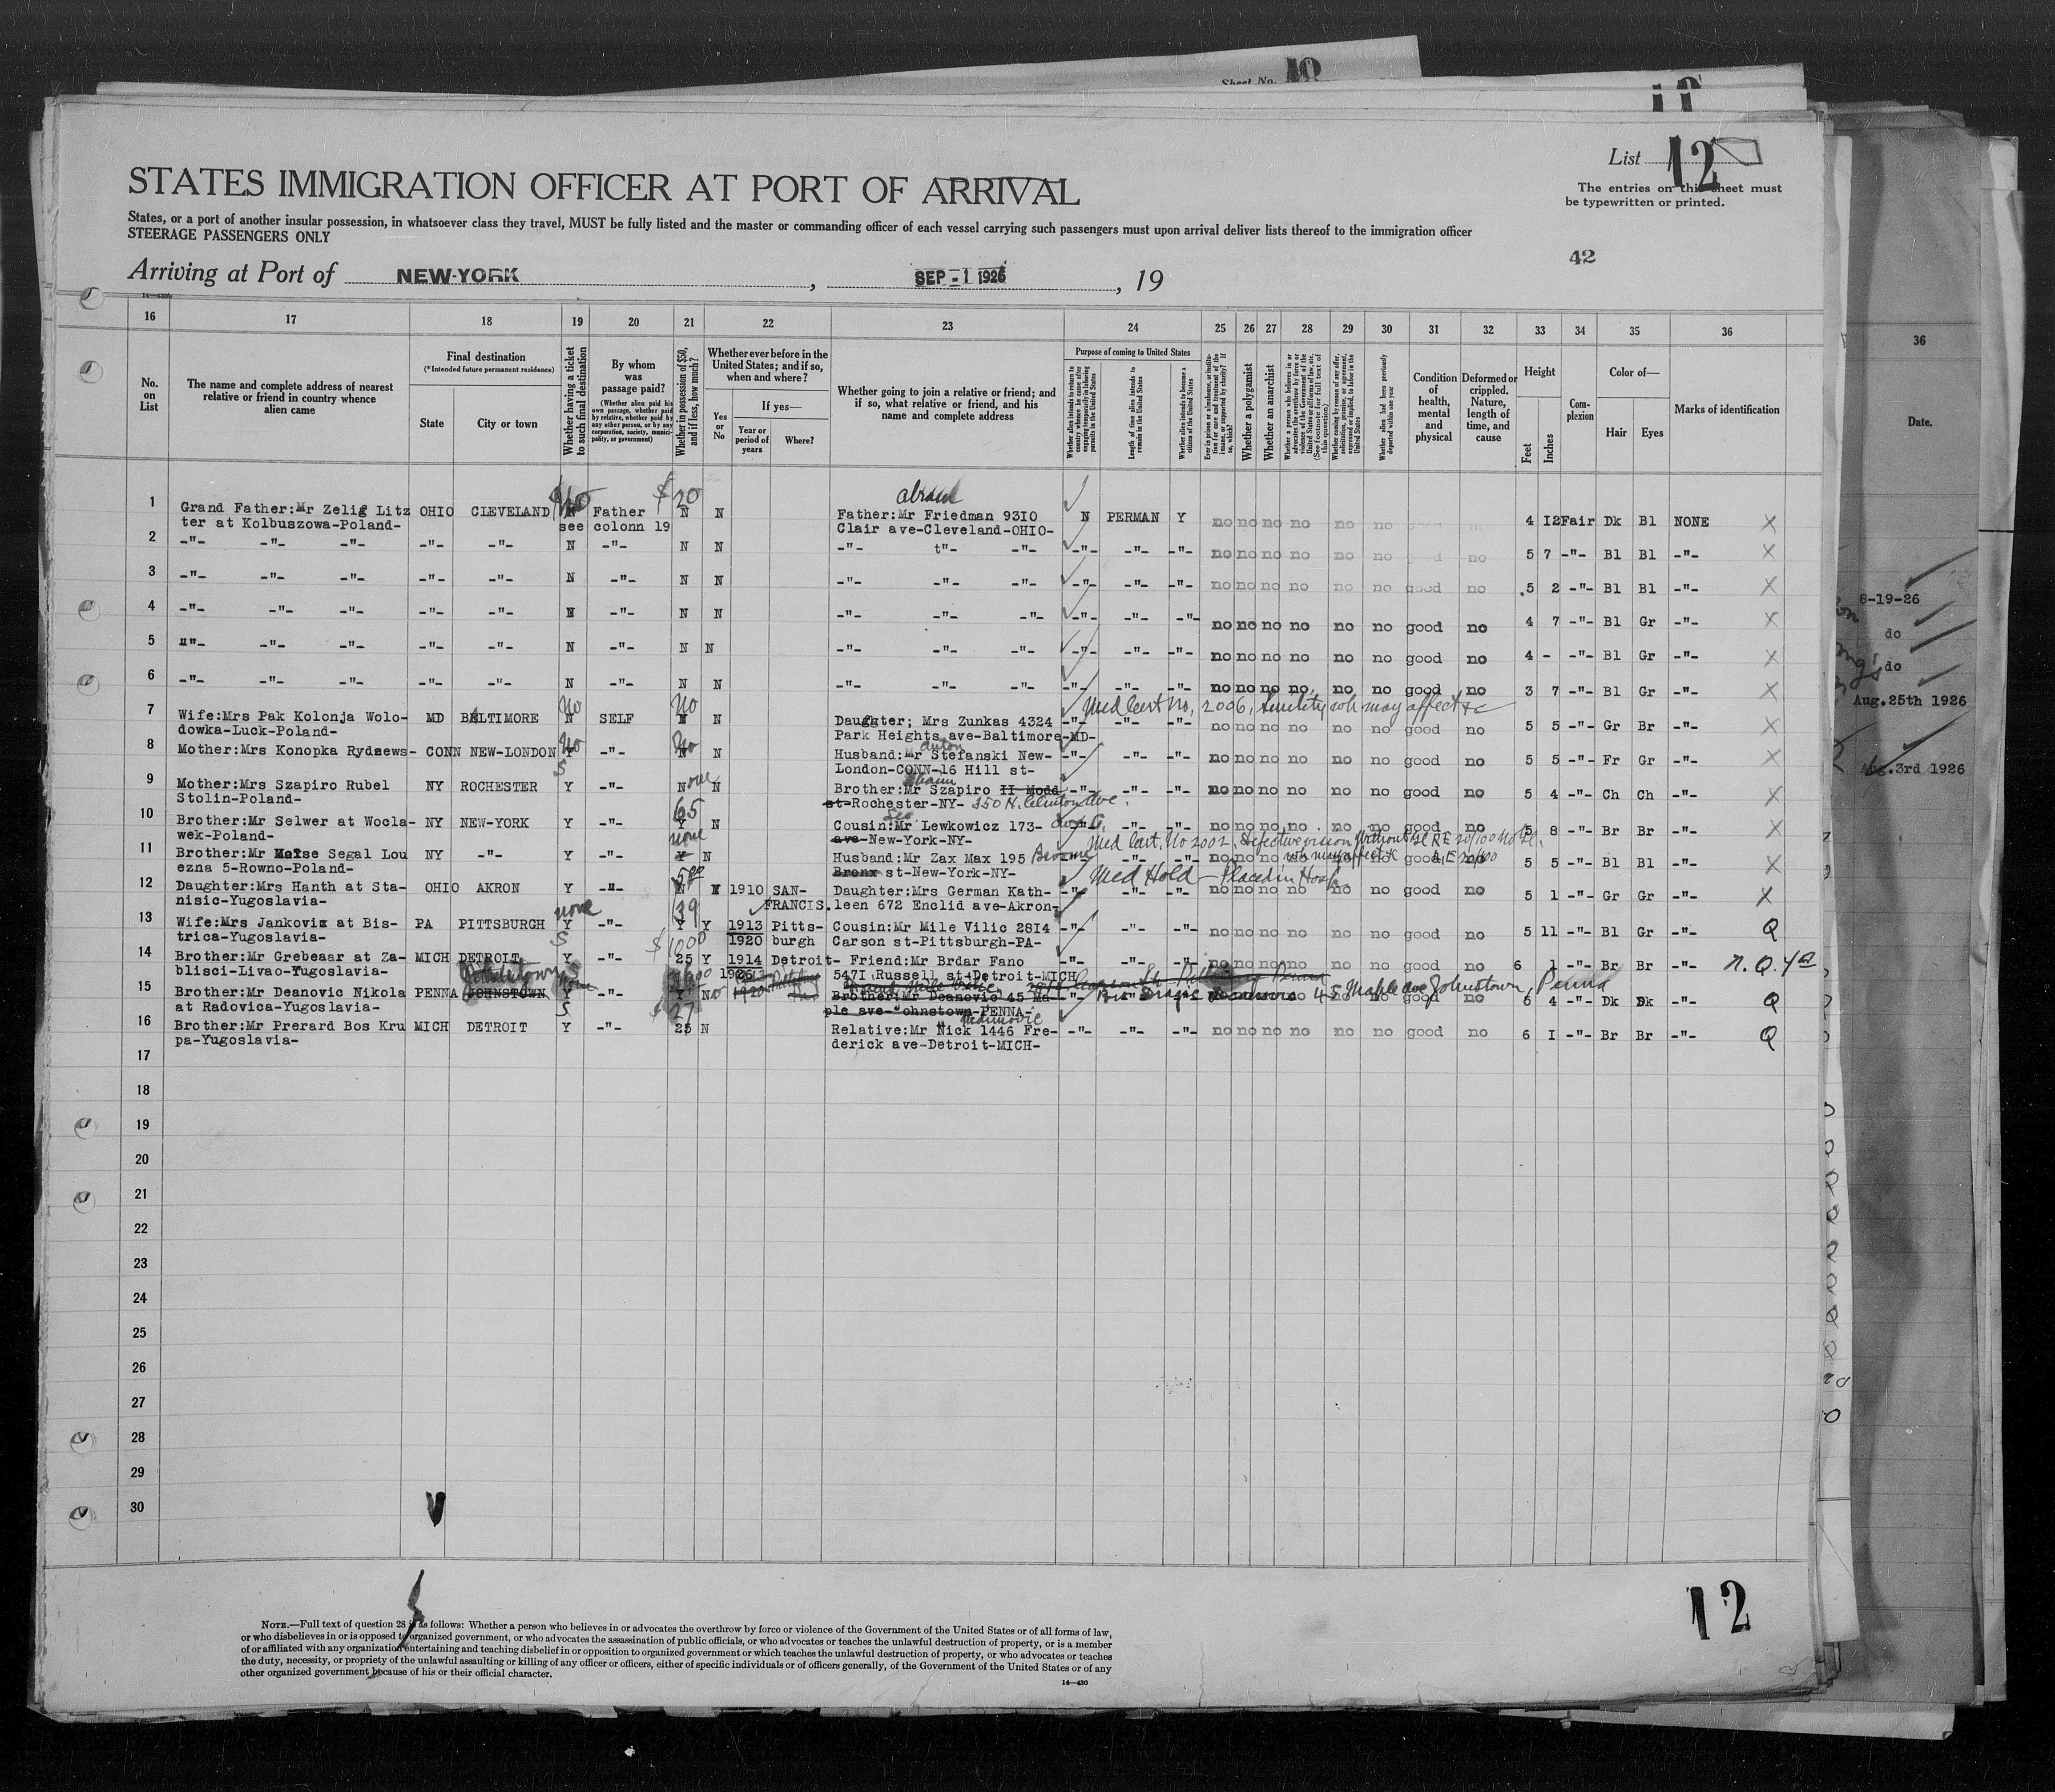 Sheet No. 10
List 12
STATES IMMIGRATION OFFICER AT PORT OF ARRIVAL
The entries on this sheet must
be typewritten or printed.
States, or a port of another insular possession, in whatsoever class they travel, MUST be fully listed and the master or commanding officer of each vessel carrying such passengers must upon arrival deliver lists thereof to the immigration officer
STEERAGE PASSENGERS ONLY
42
Arriving at Port of NEW-YORK, SEP -1 1926, 19
14—430
16 17 18 19 20 21 22 23 24 25 26 27 28 29 30 31 32 33 34 35 36
No. on List
The name and complete address of nearest relative or friend in country whence alien came
Final destination
(*Intended future permanent residence)
State
City or town
Whether having a ticket to such final destination
By whom was passage paid?
(Whether alien paid his own passage, whether paid by relative, whether paid by any other person, or by any corporation, society, municipality, or government)
Whether in possession of $50, and if less, how much?
Whether ever before in the United States; and if so, when and where?
Yes or No
If yes—
Year or period of years
Where?
Whether going to join a relative or friend; and if so, what relative or friend, and his name and complete address
Purpose of coming to United States
Length of time alien intends to remain in the United States
Whether alien intends to become a citizen of the United States
Whether a polygamist
Whether an anarchist
Whether alien had been previously deported within one year
Condition of health, mental and physical
Deformed or crippled. Nature, length of time, and cause
Height
Feet
Inches
Complexion
Color of—
Hair
Eyes
Marks of identification
36
Date.
$20
1 Grand Father:Mr Zelig Litz OHIO CLEVELAND N Father N N Father:Mr Friedman 93IO N PERMAN Y no no no no no no 4 I2 Fair Dk Bl NONE X
ter at Kolbuszowa-Poland- see colonn 19 Clair ave-Cleveland-OHIO-
2 -"- -"- -"- -"- -"- N -"- N N -"- t"- -"- -"- -"- -"- no no no no no no no 5 7 -"- Bl Bl -"- X
3 -"- -"- -"- -"- -"- N -"- N N -"- -"- -"- -"- -"- -"- no no no no no no good no 5 2 -"- Bl Bl -"- X
4 -"- -"- -"- -"- -"- N -"- N N -"- -"- -"- -"- -"- -"- no no no no no no good no 4 7 -"- Bl Gr -"- X
5 -"- -"- -"- -"- -"- N -"- N N -"- -"- -"- -"- -"- -"- no no no no no no good no 4 - -"- Bl Gr -"- X
6 -"- -"- -"- -"- -"- N -"- N N -"- -"- -"- -"- -"- -"- no no no no no no good no 3 7 -"- Bl Gr -"- X
No No Med Cert No. 2006, Senility wh may affect &c
7 Wife:Mrs Pak Kolonja Wolo- MD BALTIMORE N SELF N N Daugter; Mrs Zunkas 4324 -"- -"- -"- no no no no no no good no 5 5 -"- Gr Br -"- X
dowka-Luck-Poland- Park Heights ave-Baltimore-MD-
No No Anton
8 Mother:Mrs Konopka Rydzews- CONN NEW-LONDON Y -"- N N Husband:Mr Stefanski New- -"- -"- -"- no no no no no no good no 5 5 -"- Fr Gr -"- X
London-CONN-16 Hill st-
9 Mother:Mrs Szapiro Rubel NY ROCHESTER Y -"- None N Brother:Mr Szapiro II Modd -"- -"- -"- no no no no no no good no 5 4 -"- Ch Ch -"- X
Stolin-Poland- st-Rochester-NY- 350 N. Clinton Ave.
65 Leo
10 Brother:Mr Selwer at Wocla- NY NEW-YORK Y -"- Y N Cousin:Mr Lewkowicz 173- -"- -"- -"- no no no no no no good no 5 8 -"- Br Br -"- X
wek-Poland- ave-New-York-NY-
none Med Cert. No 2002, Defective vision without Gl RE 20/100
11 Brother:Mr Moise Segal Lou NY -"- Y -"- Y N Husband:Mr Zax Max 195 Broome -"- -"- no no no no no no good no 5 5 -"- Bl Bl -"- X
ezna 5-Rowno-Poland- Bronx st-New-York-NY- Med Hold - Placed in Hosp.
12 Daughter:Mrs Hanth at Sta- OHIO AKRON Y -"- N Y 1910 SAN- Daughter:Mrs German Kath- -"- -"- -"- no no no no no no good no 5 1 -"- Gr Gr -"- X
nisic-Yugoslavia- FRANCIS. leen 672 Enclid ave-Akron-
none 39
13 Wife:Mrs Jankovix at Bis- PA PITTSBURGH Y -"- Y Y 1913 Pitts- Cousin:Mr Mile Vilic 28I4 -"- -"- -"- no no no no no no good no 5 11 -"- Bl Gr -"- Q
trica-Yugoslavia- 1920 burgh Carson st-Pittsburgh-PA-
14 Brother:Mr Grebeaar at Za- MICH DETROIT Y -"- 25 Y 1914 Detroit- Friend:Mr Brdar Fano -"- -"- -"- no no no no no no good no 6 1 -"- Br Br -"- N.Q.
blisci-Livao-Yugoslavia- 1926 547I Russell st-Detroit-MICH
15 Brother:Mr Deanovic Nikola PENNA JOHNSTOWN Y -"- Y No Brother:Mr Deanovic 45 Ma- 45 Maple ave Johnstown, Penna no good no 6 4 -"- Dk Dk -"- Q
at Radovica-Yugoslavia- ple ave-"ohnstown-PENNA-
27
16 Brother:Mr Prerard Bos Kru MICH DETROIT Y -"- 25 N Relative:Mr Nick 1446 Fre- -"- -"- -"- no no no no no no good no 6 I -"- Br Br -"- Q
pa-Yugoslavia- derick ave-Detroit-MICH-
17
18
19
20
21
22
23
24
25
26
27
28
29
30
8-19-26
do
do
Aug.25th 1926
Aug.3rd 1926
12
NOTE.—Full text of question 28 is as follows: Whether a person who believes in or advocates the overthrow by force or violence of the Government of the United States or of all forms of law,
or who disbelieves in or is opposed to organized government, or who advocates the assassination of public officials, or who advocates or teaches the unlawful destruction of property, or is a member
of or affiliated with any organization entertaining and teaching disbelief in or opposition to organized government or which teaches the unlawful destruction of property, or who advocates or teaches
the duty, necessity, or propriety of the unlawful assaulting or killing of any officer or officers, either of specific individuals or of officers generally, of the Government of the United States or of any
other organized government because of his or their official character.
14—430